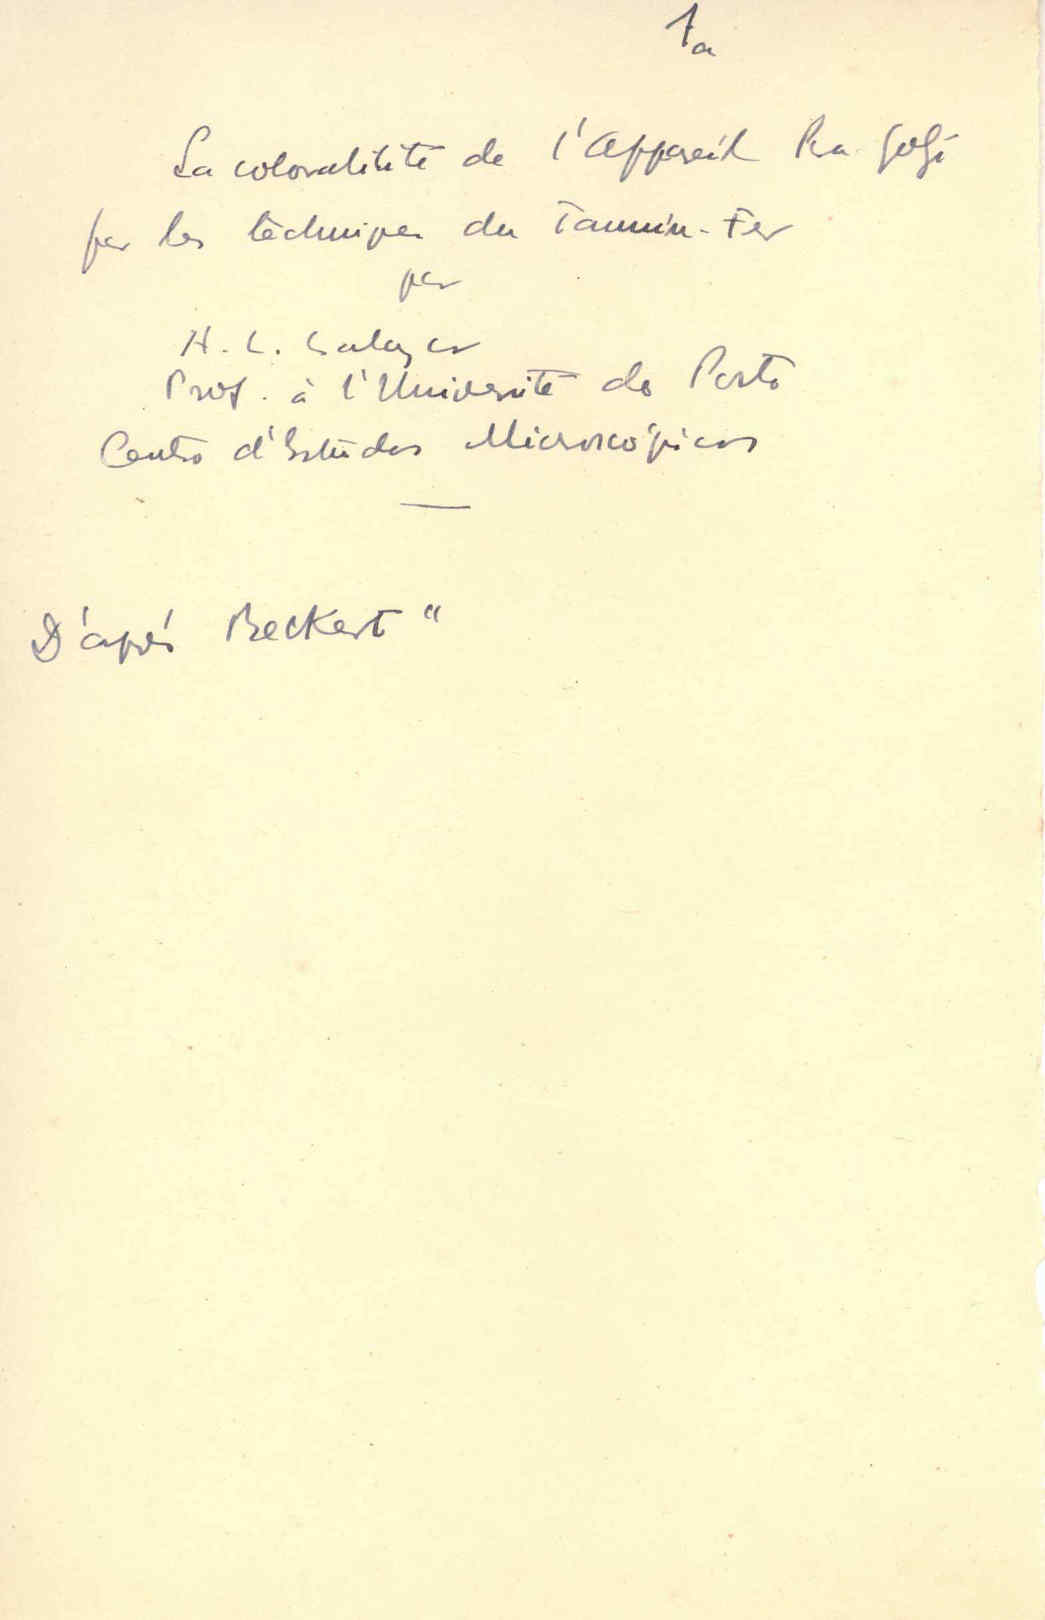 1a
La colorabilité de l'Appareil Para-Golgi
par les techniques du Tannin-Fer
par
A. L. Salazar
Prof. à l'Université do Porto
Centro d'Estudos Microscópicos
D'après Beckert "